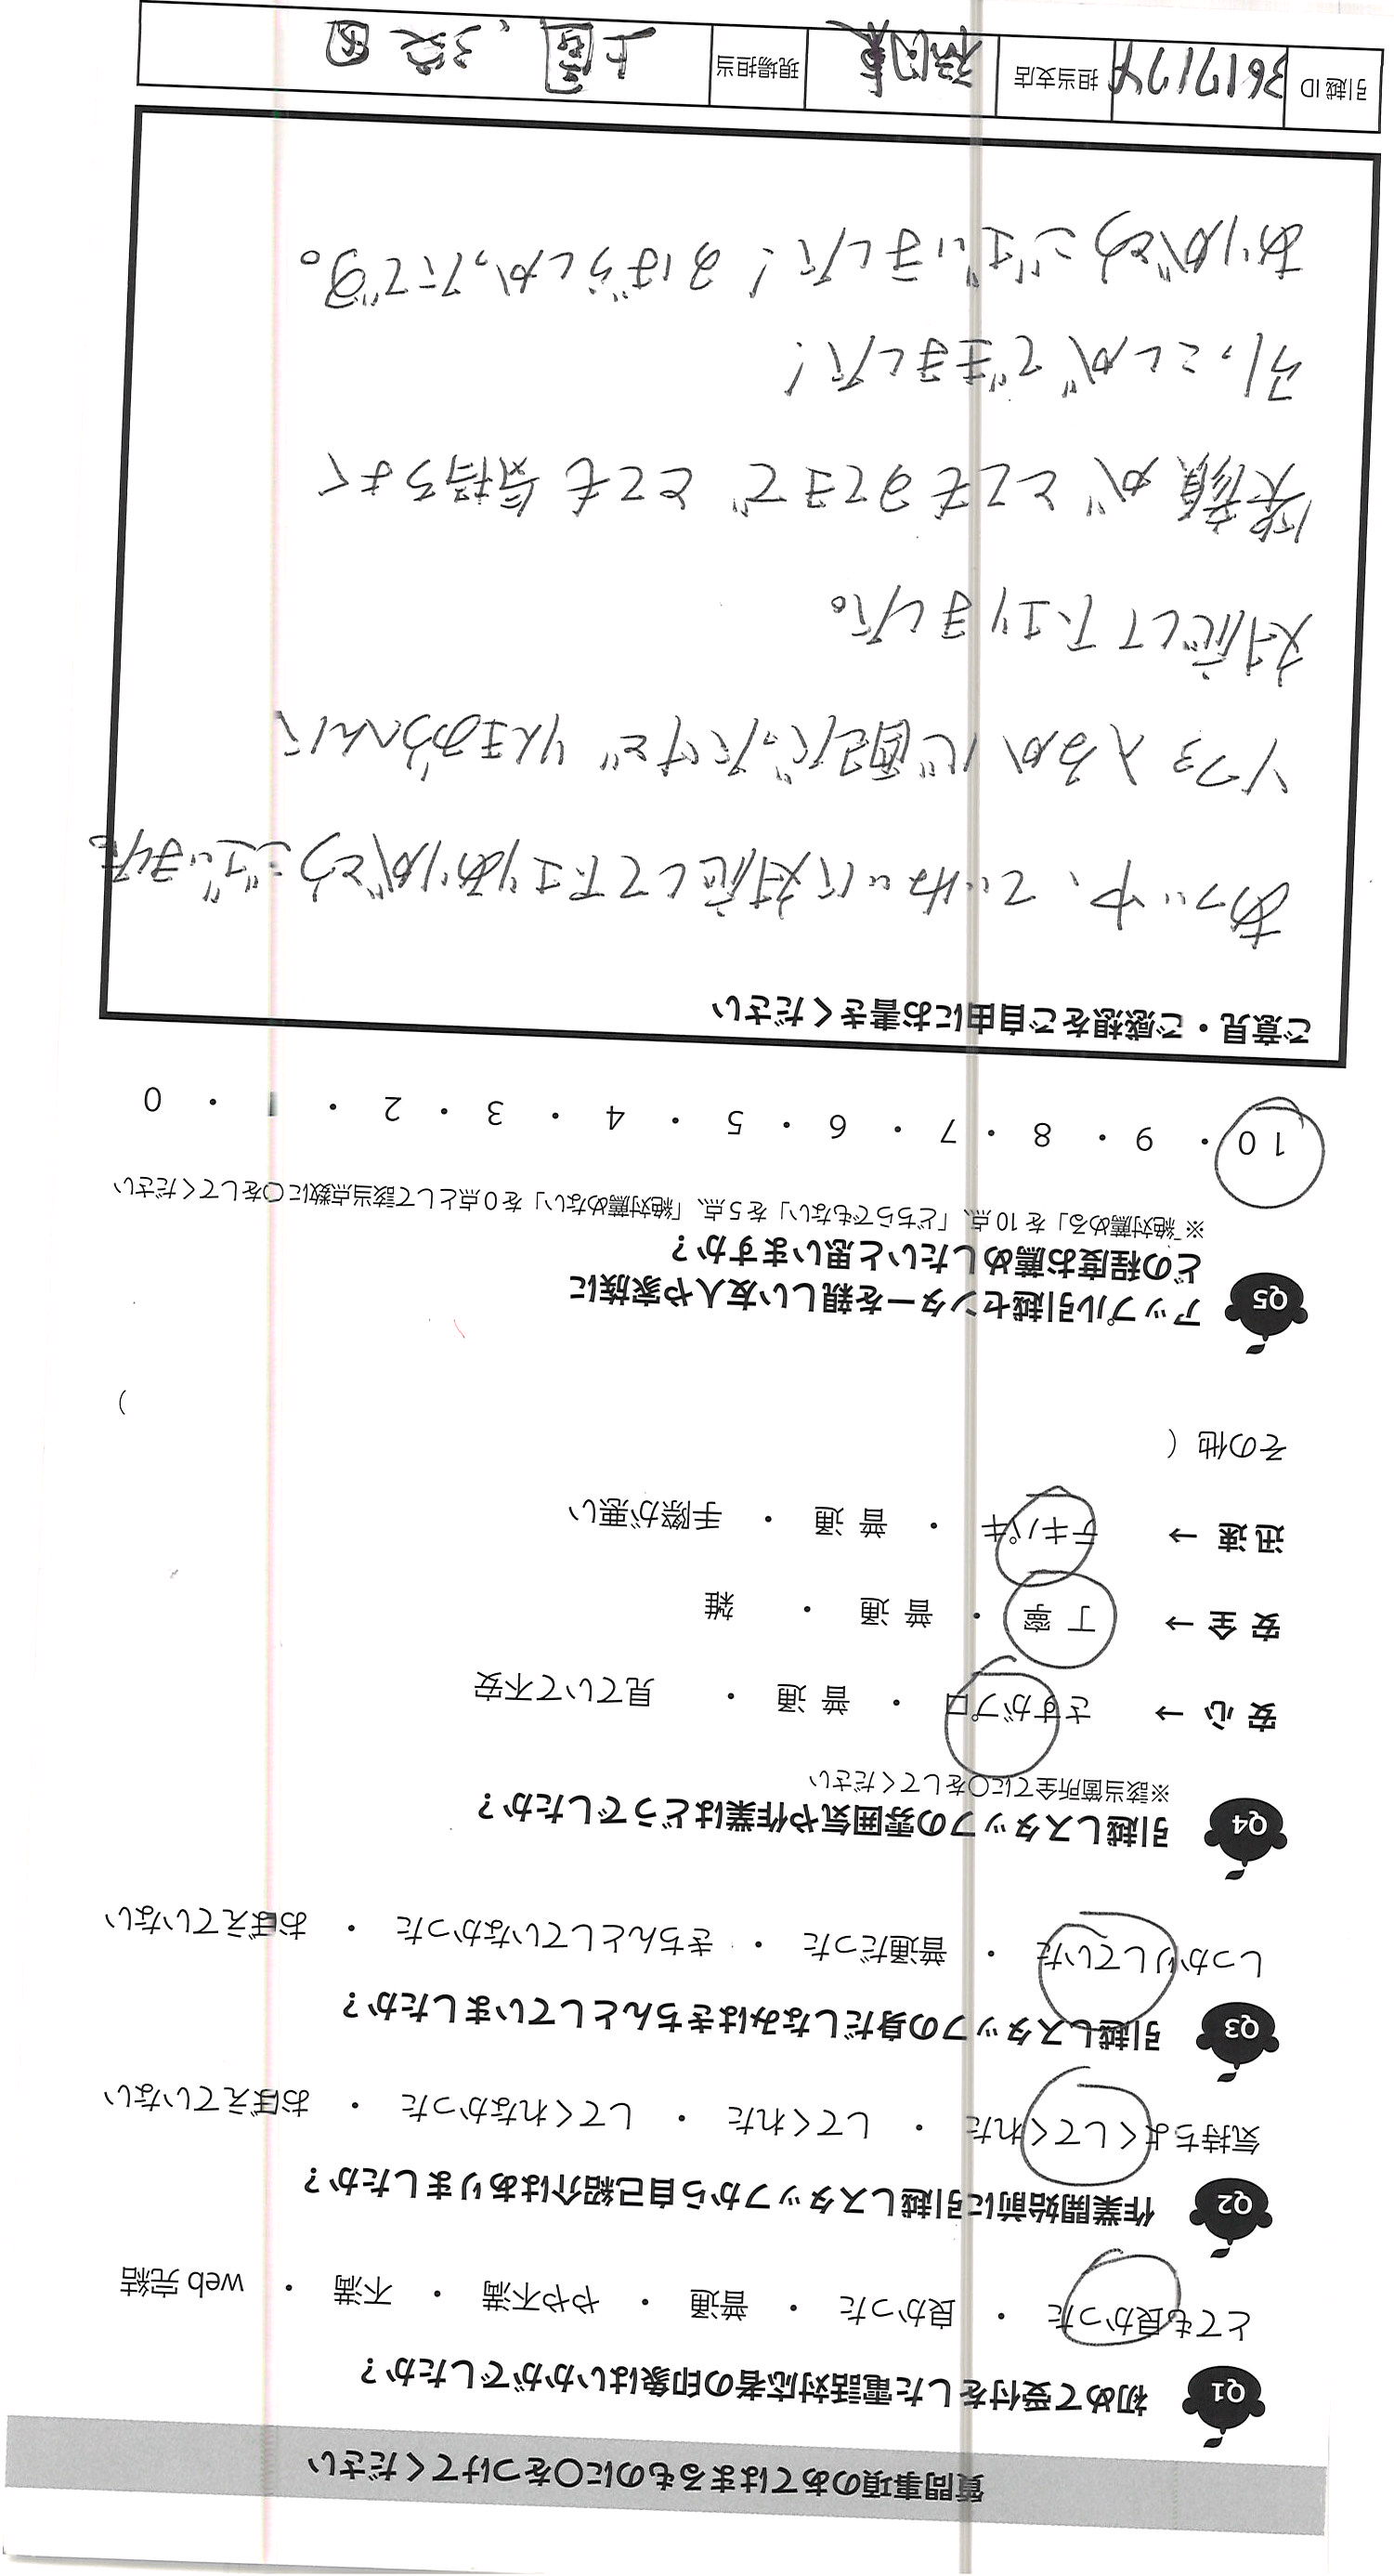 質問事項のあてはまるものに○をつけてください
Q1 初めて受付をした電話対応者の印象はいかがでしたか?
とても良かった ・ 良かった ・ 普通 ・ やや不満 ・ 不満 ・ web 完結
Q2 作業開始前に引越しスタッフから自己紹介はありましたか?
気持ちよくしてくれた ・ してくれた ・ してくれなかった ・ おぼえていない
Q3 引越しスタッフの身だしなみはきちんとしていましたか?
しっかりしていた ・ 普通だった ・ きちんとしていなかった ・ おぼえていない
Q4 引越しスタッフの雰囲気や作業はどうでしたか?
※該当箇所全てに○をしてください
安 心 → さすがプロ ・ 普 通 ・ 見ていて不安
安 全 → 丁 寧 ・ 普 通 ・ 雑
迅 速 → テキパキ ・ 普 通 ・ 手際が悪い
その他 ( )
Q5 アップル引越センターを親しい友人や家族に
どの程度お薦めしたいと思いますか?
※「絶対薦める」を 10 点、「どちらでもない」を 5 点、「絶対薦めない」を 0 点として該当点数に○をしてください
10 ・ 9 ・ 8 ・ 7 ・ 6 ・ 5 ・ 4 ・ 3 ・ 2 ・ 1 ・ 0
ご意見・ご感想をご自由にお書きください
あつい中、ていねいに対応して下さりありがとうございました。
ソファ入るか心配だったけど りんきおうへんに
対応して下さりました。
笑顔が とてもすてきで とても 気持ちよく
引っこしができました!
ありがとうございました! すばらしかったです。
引越 ID 3617174 担当支店 福岡東 現場担当 上国